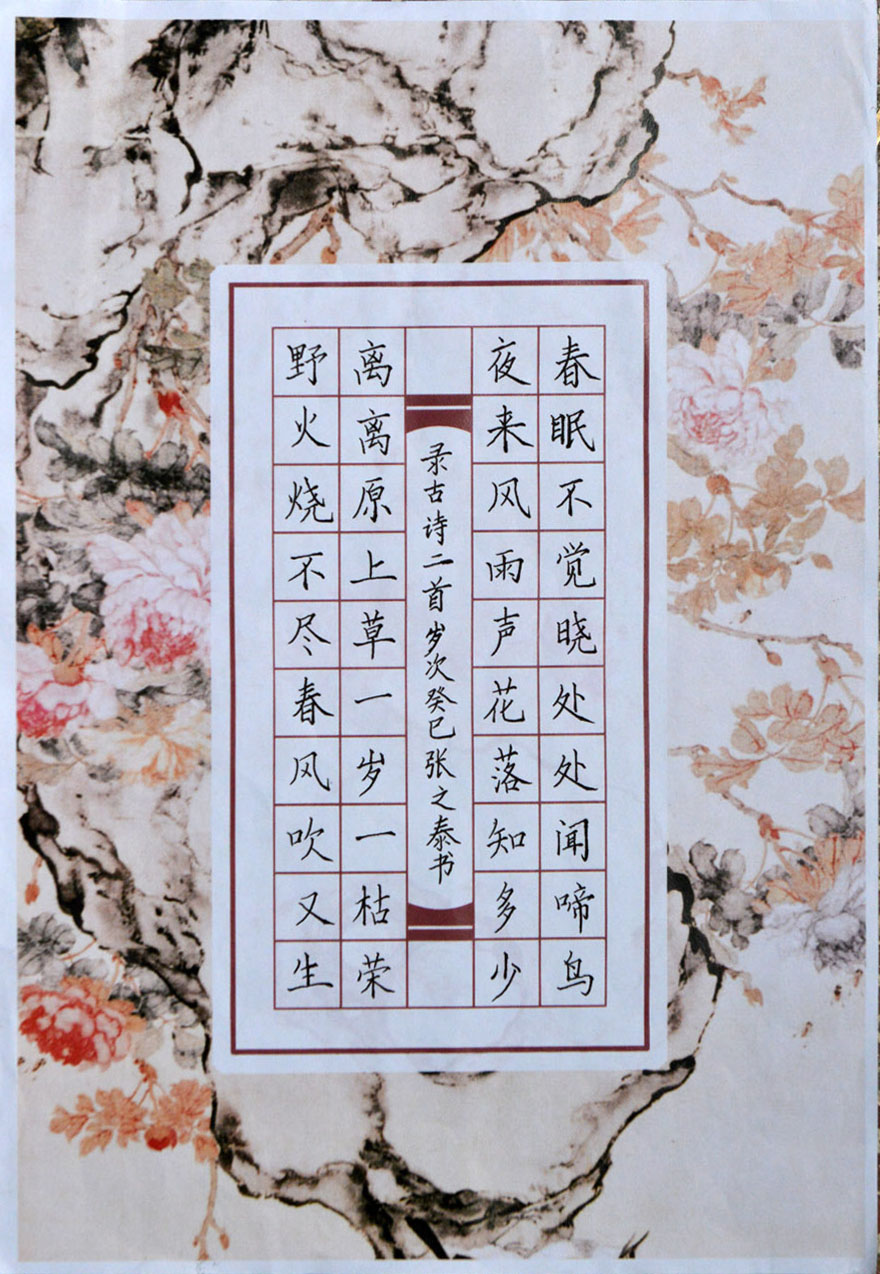 春眠不觉晓处处闻啼鸟
夜来风雨声花落知多少
录古诗二首岁次癸巳张之泰书
离离原上草一岁一枯荣
野火烧不尽春风吹又生